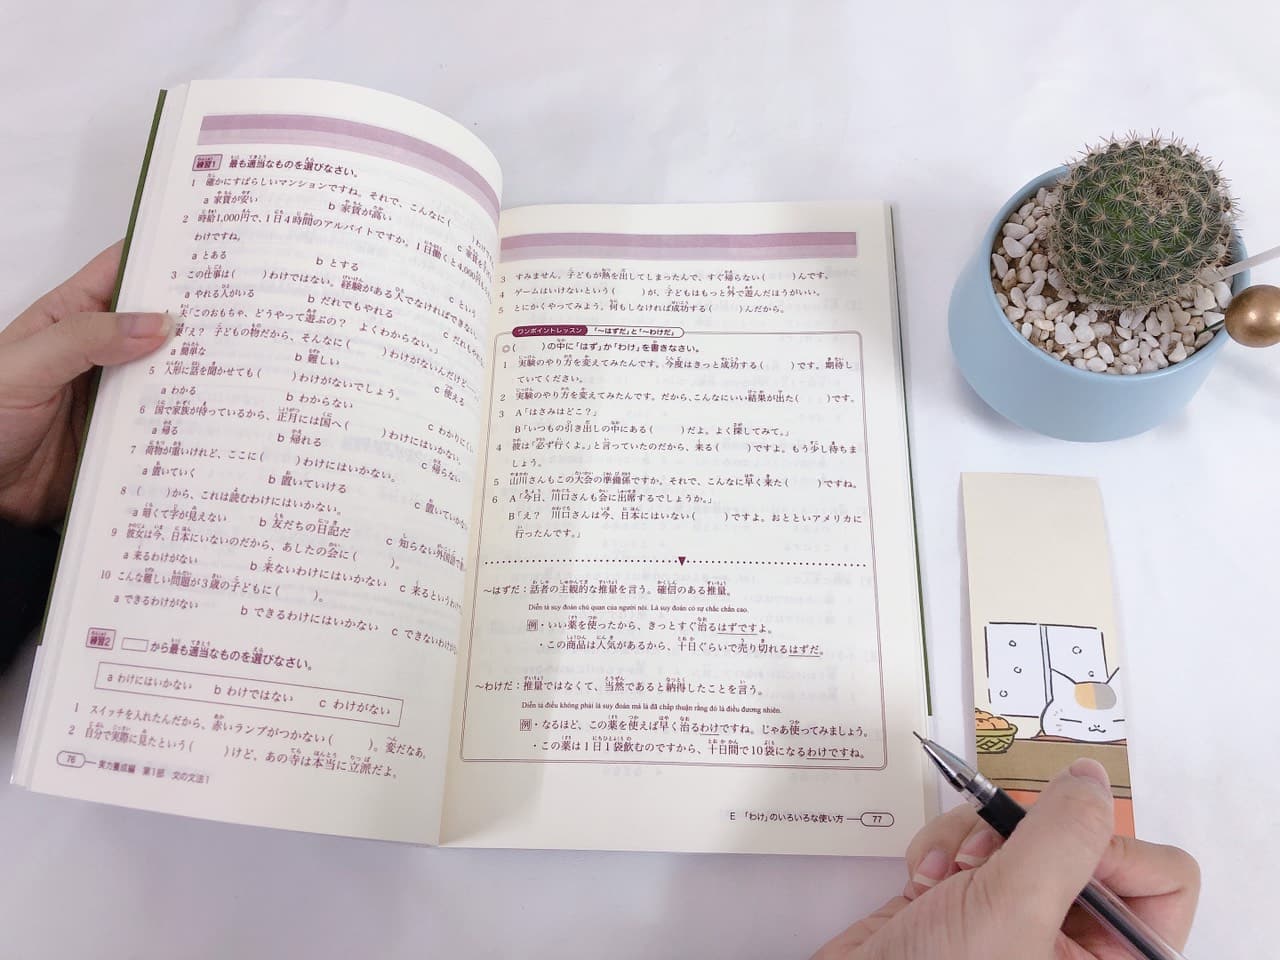 練習1 最も適当なものを選びなさい。
1 確かにすばらしいマンションですね。それで、こんなに( )わけ
a 家賃が安い b 家賃が高い c 家賃を
2 時給1,000円で、1日4時間のアルバイトですか。1日働くと4,000円
わけですね。
a とある b とする c という
3 この仕事は( )わけではない。経験がある人でなければできない
a やれる人がいる b だれでもやれる c だれもやれ
夫「このおもちゃ、どうやって遊ぶの? よくわからない。」
妻「え? 子どもの物だから、そんなに( )わけがないんだけど
a 簡単な b 難しい c 使える
5 人形に話を聞かせても( )わけがないでしょう。
a わかる b わからない c わかりにくい
6 国で家族が待っているから、正月には国へ( )わけにはいかない。
a 帰る b 帰れる c 帰らない
7 荷物が重いけれど、ここに( )わけにはいかない。
a 置いていく b 置いていける c 置いていかない
8 ( )から、これは読むわけにはいかない。
a 暗くて字が見えない b 友だちの日記だ c 知らない外国語で
9 彼女は今、日本にいないのだから、あしたの会に( )。
a 来るわけがない b 来ないわけにはいかない c 来るというわけ
10 こんな難しい問題が3歳の子どもに( )。
a できるわけがない b できるわけにはいかない c できないわけが
練習2 から最も適当なものを選びなさい。
a わけにはいかない b わけではない c わけがない
1 スイッチを入れたんだから、赤いランプがつかない( )。変だなあ。
2 自分で実際に見たという( )けど、あの寺は本当に立派だよ。
76 実力養成編 第1部 文の文法1
3 すみません。子どもが熱を出してしまったんで、すぐ帰らない( )んです。
4 ゲームはいけないという( )が、子どもはもっと外で遊んだほうがいい。
5 とにかくやってみよう。何もしなければ成功する( )んだから。
ワンポイントレッスン 「〜はずだ」と「〜わけだ」
◎( )の中に「はず」か「わけ」を書きなさい。
1 実験のやり方を変えてみたんです。今度はきっと成功する( )です。期待し
ていてください。
2 実験のやり方を変えてみたんです。だから、こんなにいい結果が出た( )です。
3 A「はさみはどこ?」
B「いつもの引き出しの中にある( )だよ。よく探してみて。」
4 彼は「必ず行くよ。」と言っていたのだから、来る( )ですよ。もう少し待ちま
しょう。
5 山川さんもこの大会の準備係ですか。それで、こんなに早く来た( )ですね。
6 A「今日、川口さんも会に出席するでしょうか。」
B「え? 川口さんは今、日本にはいない( )ですよ。おとといアメリカに
行ったんです。」
〜はずだ:話者の主観的な推量を言う。確信のある推量。
Diễn tả suy đoán chủ quan của người nói. Là suy đoán có sự chắc chắn cao.
例・いい薬を使ったから、きっとすぐ治るはずですよ。
・この商品は人気があるから、十日ぐらいで売り切れるはずだ。
〜わけだ:推量ではなくて、当然であると納得したことを言う。
Diễn tả điều không phải là suy đoán mà là đã chấp thuận rằng đó là điều đương nhiên.
例・なるほど、この薬を使えば早く治るわけですね。じゃあ使ってみましょう。
・この薬は1日1袋飲むのですから、十日間で10袋になるわけですね。
E 「わけ」のいろいろな使い方 77